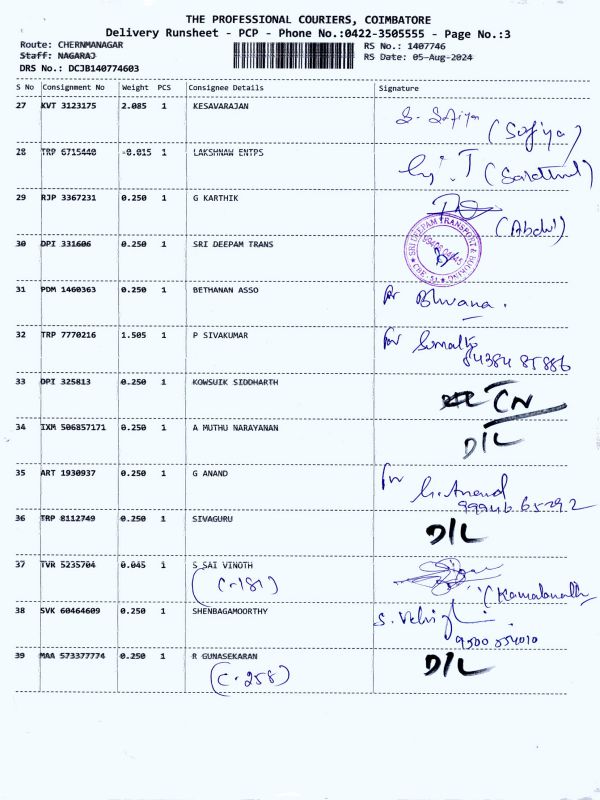 THE PROFESSIONAL COURIERS, COIMBATORE
Delivery Runsheet - PCP - Phone No.:0422-3505555 - Page No.:3
Route: CHERNMANAGAR
Staff: NAGARAJ
DRS No.: DCJB140774603
RS No.: 1407746
RS Date: 05-Aug-2024
S No Consignment No Weight PCS Consignee Details Signature
27 KVT 3123175 2.085 1 KESAVARAJAN
(Sofiya)
28 TRP 6715440 -0.015 1 LAKSHNAW ENTPS
29 RJP 3367231 0.250 1 G KARTHIK
(Abdul)
30 DPI 331606 0.250 1 SRI DEEPAM TRANS
SRI DEEPAM TRANSPORT &
31 PDM 1460363 0.250 1 BETHANAN ASSO
for Bhvana.
32 TRP 7770216 1.505 1 P SIVAKUMAR
for
84384 85886
33 DPI 325813 0.250 1 KOWSUIK SIDDHARTH
CN
34 IXM 506857171 0.250 1 A MUTHU NARAYANAN
D/L
35 ART 1930937 0.250 1 G ANAND
for G. Anand
36 TRP 8112749 0.250 1 SIVAGURU
D/L
37 TVR 5235704 0.045 1 S SAI VINOTH
(C-181)
(Kamalanath
38 SVK 60464609 0.250 1 SHENBAGAMOORTHY
39 MAA 573377774 0.250 1 R GUNASEKARAN
D/L
(C-258)